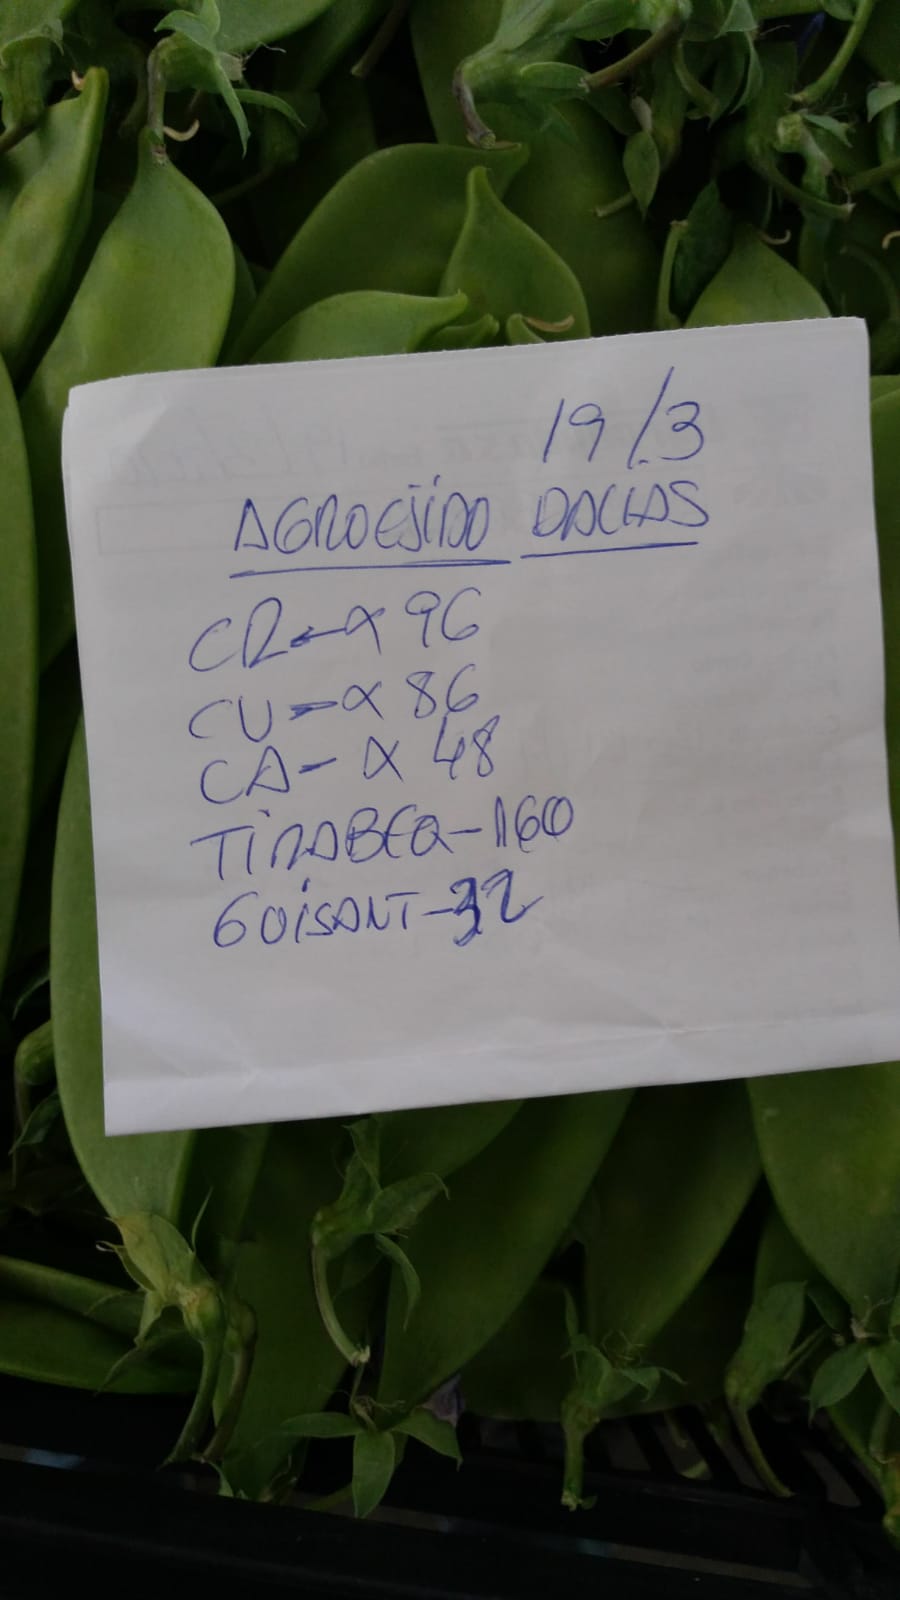 19/3
AGROEJIDO DALIAS
CR - x 96
CU - x 86
CA - x 48
TIRABEQ - 160
GUISANT - 32